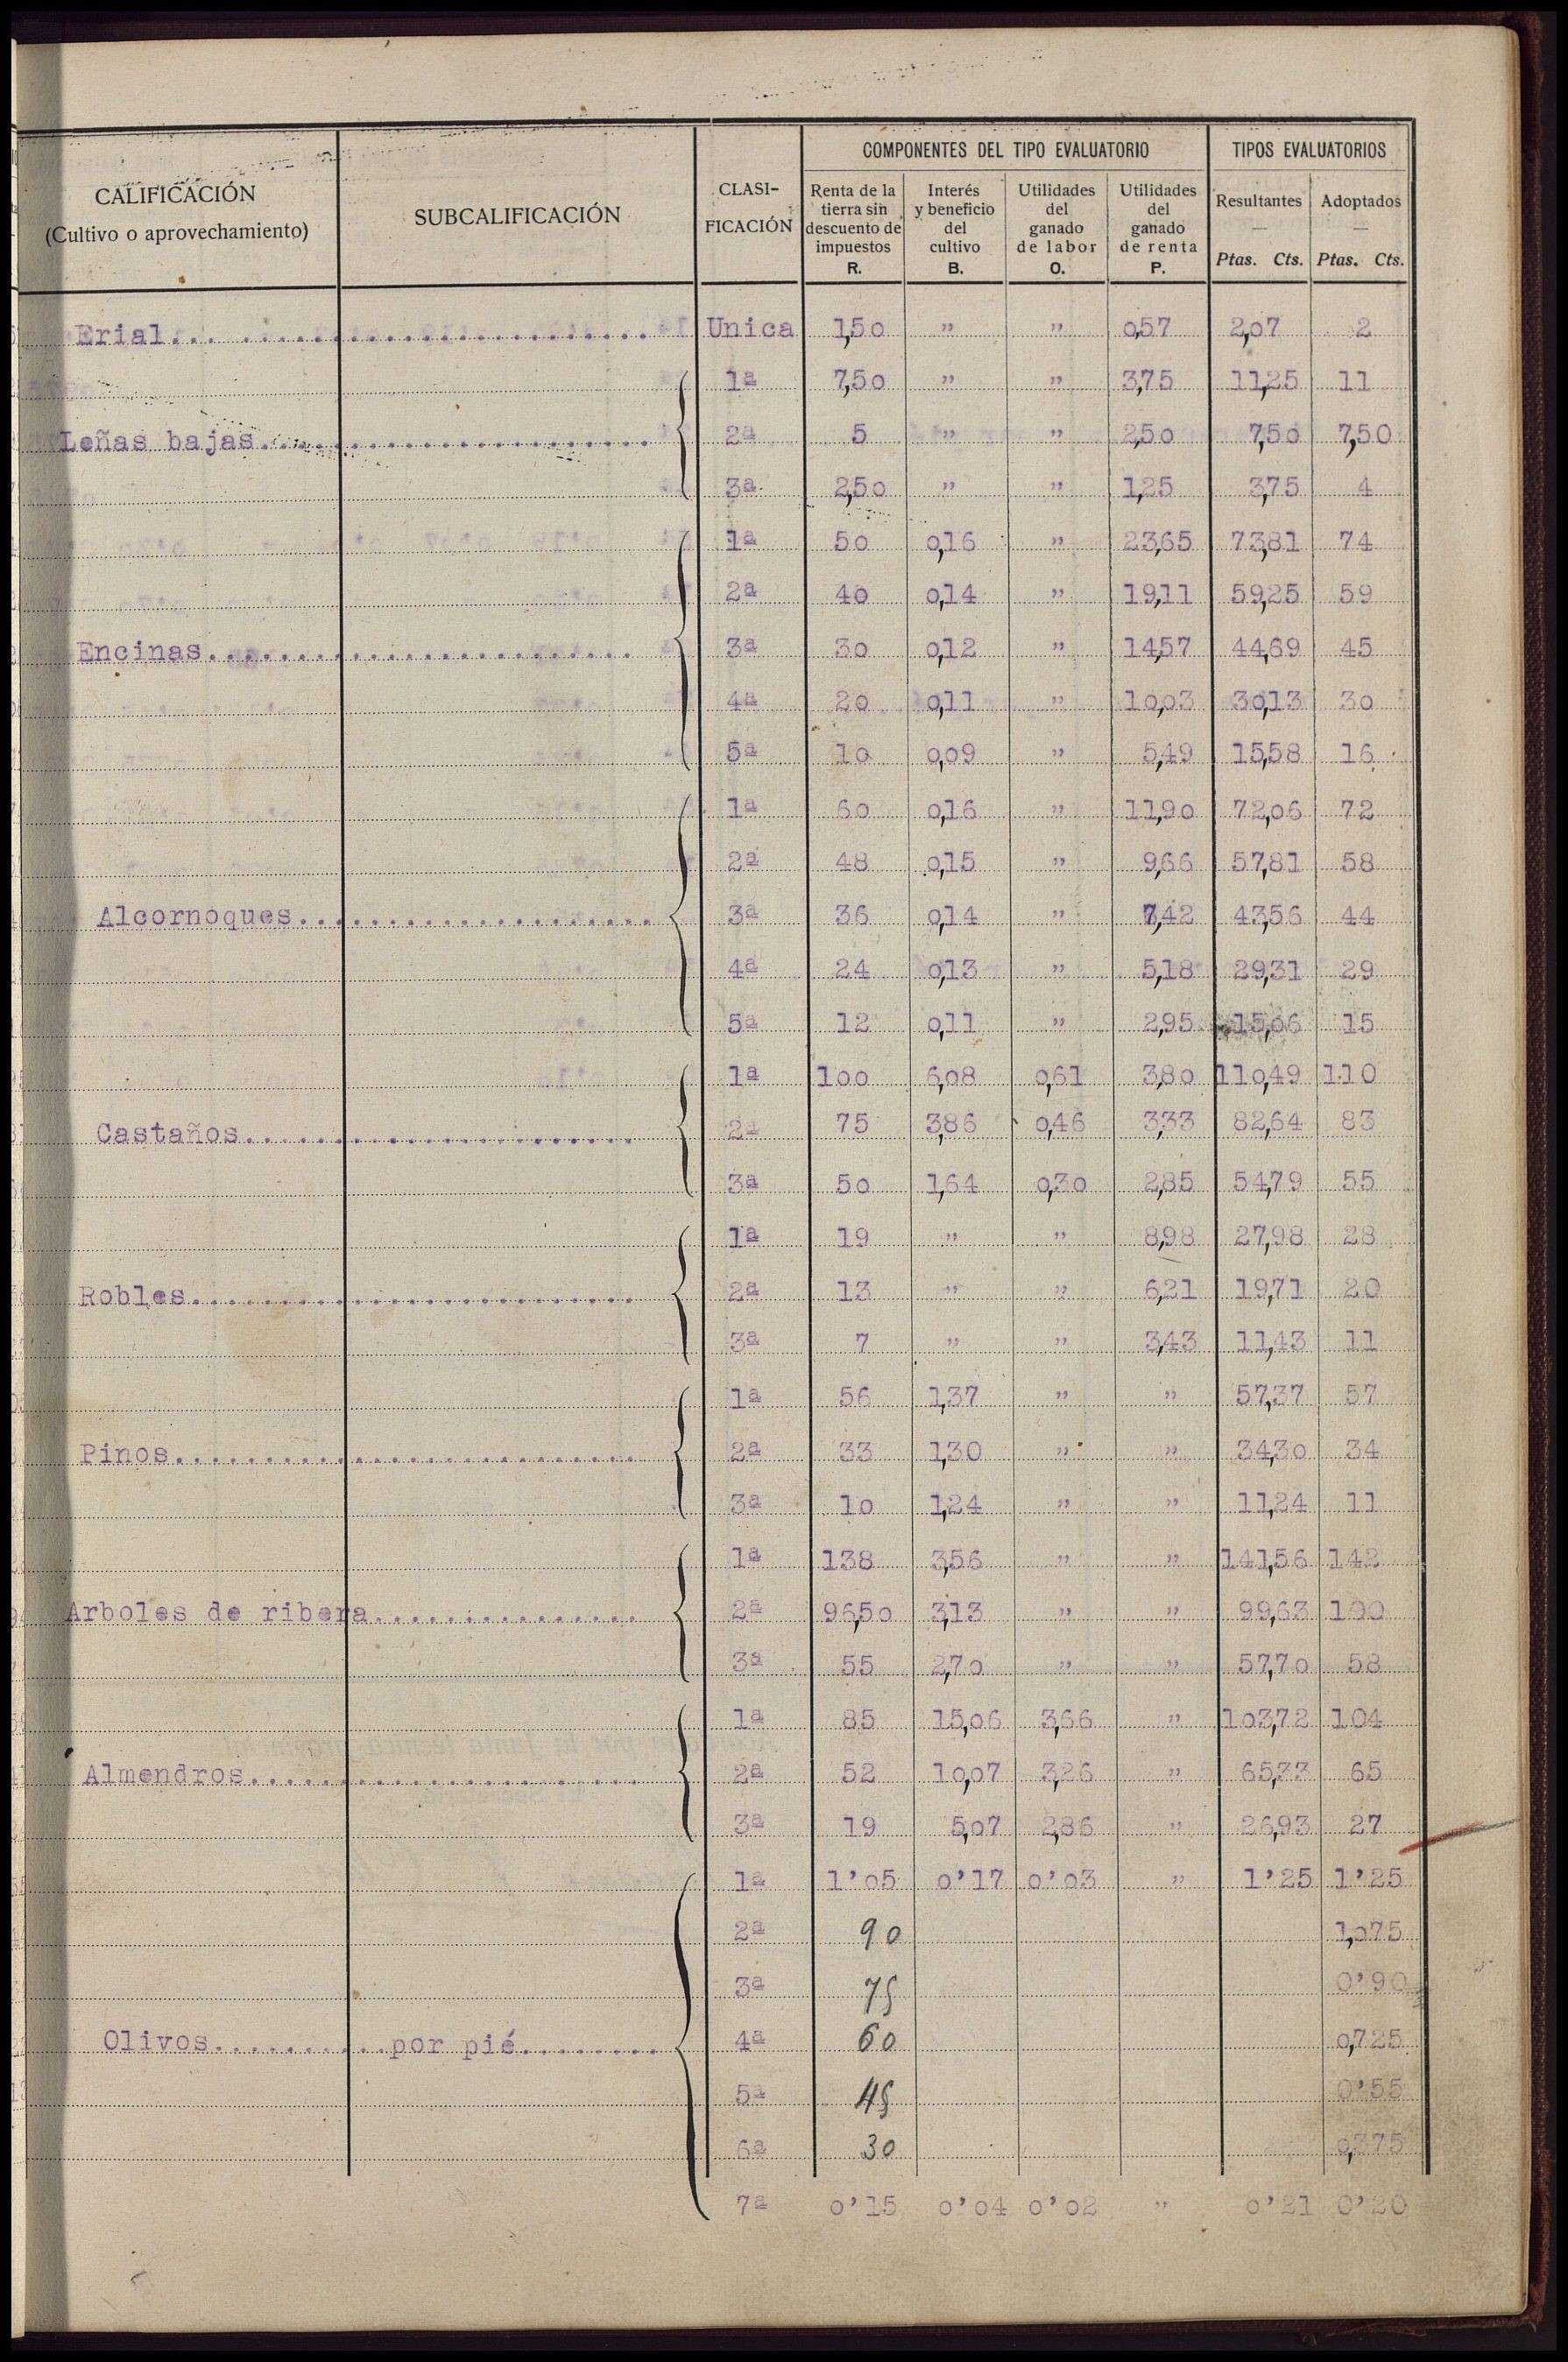 COMPONENTES DEL TIPO EVALUATORIO TIPOS EVALUATORIOS
CALIFICACIÓN
(Cultivo o aprovechamiento)
SUBCALIFICACIÓN
CLASI-
FICACIÓN
Renta de la
tierra sin
descuento de
impuestos
R.
Interés
y beneficio
del
cultivo
B.
Utilidades
del
ganado
de labor
O.
Utilidades
del
ganado
de renta
P.
Resultantes
—
Ptas. Cts.
Adoptados
—
Ptas. Cts.
Erial........................... Unica 1,50 " " 0,57 2,07 2
1ª 7,50 " " 3,75 11,25 11
Leñas bajas...................... 2ª 5 " " 2,50 7,50 7,50
3ª 2,50 " " 1,25 3,75 4
1ª 50 0,16 " 23,65 73,81 74
2ª 40 0,14 " 19,11 59,25 59
Encinas........................ 3ª 30 0,12 " 14,57 44,69 45
4ª 20 0,11 " 10,03 30,13 30
5ª 10 0,09 " 5,49 15,58 16
1ª 60 0,16 " 11,90 72,06 72
2ª 48 0,15 " 9,66 57,81 58
Alcornoques.................... 3ª 36 0,14 " 7,42 43,56 44
4ª 24 0,13 " 5,18 29,31 29
5ª 12 0,11 " 2,95 15,06 15
1ª 100 6,08 0,61 3,80 110,49 110
Castaños...................... 2ª 75 3,86 0,46 3,33 82,64 83
3ª 50 1,64 0,30 2,85 54,79 55
1ª 19 " " 8,98 27,98 28
Robles......................... 2ª 13 " " 6,21 19,71 20
3ª 7 " " 3,43 11,43 11
1ª 56 1,37 " " 57,37 57
Pinos.......................... 2ª 33 1,30 " " 34,30 34
3ª 10 1,24 " " 11,24 11
1ª 138 3,56 " " 141,56 142
Arboles de ribera............... 2ª 96,50 3,13 " " 99,63 100
3ª 55 2,70 " " 57,70 58
1ª 85 15,06 3,66 " 103,72 104
Almendros...................... 2ª 52 10,07 3,26 " 65,33 65
3ª 19 5,07 2,86 " 26,93 27
1ª 1'05 0'17 0'03 " 1'25 1'25
2ª 90 1,075
3ª 75 0'90
Olivos..........por pié........ 4ª 60 0,725
5ª 45 0'55
6ª 30 0,375
7ª 0'15 0'04 0'02 " 0'21 0'20